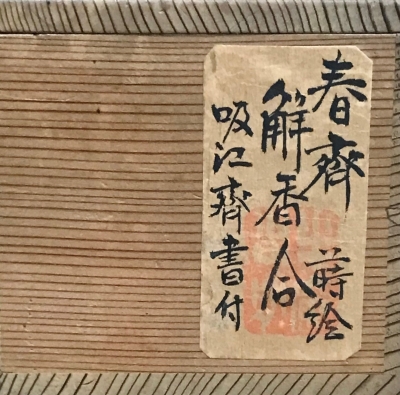 春齊 蒔絵
解香合
吸江齊書付